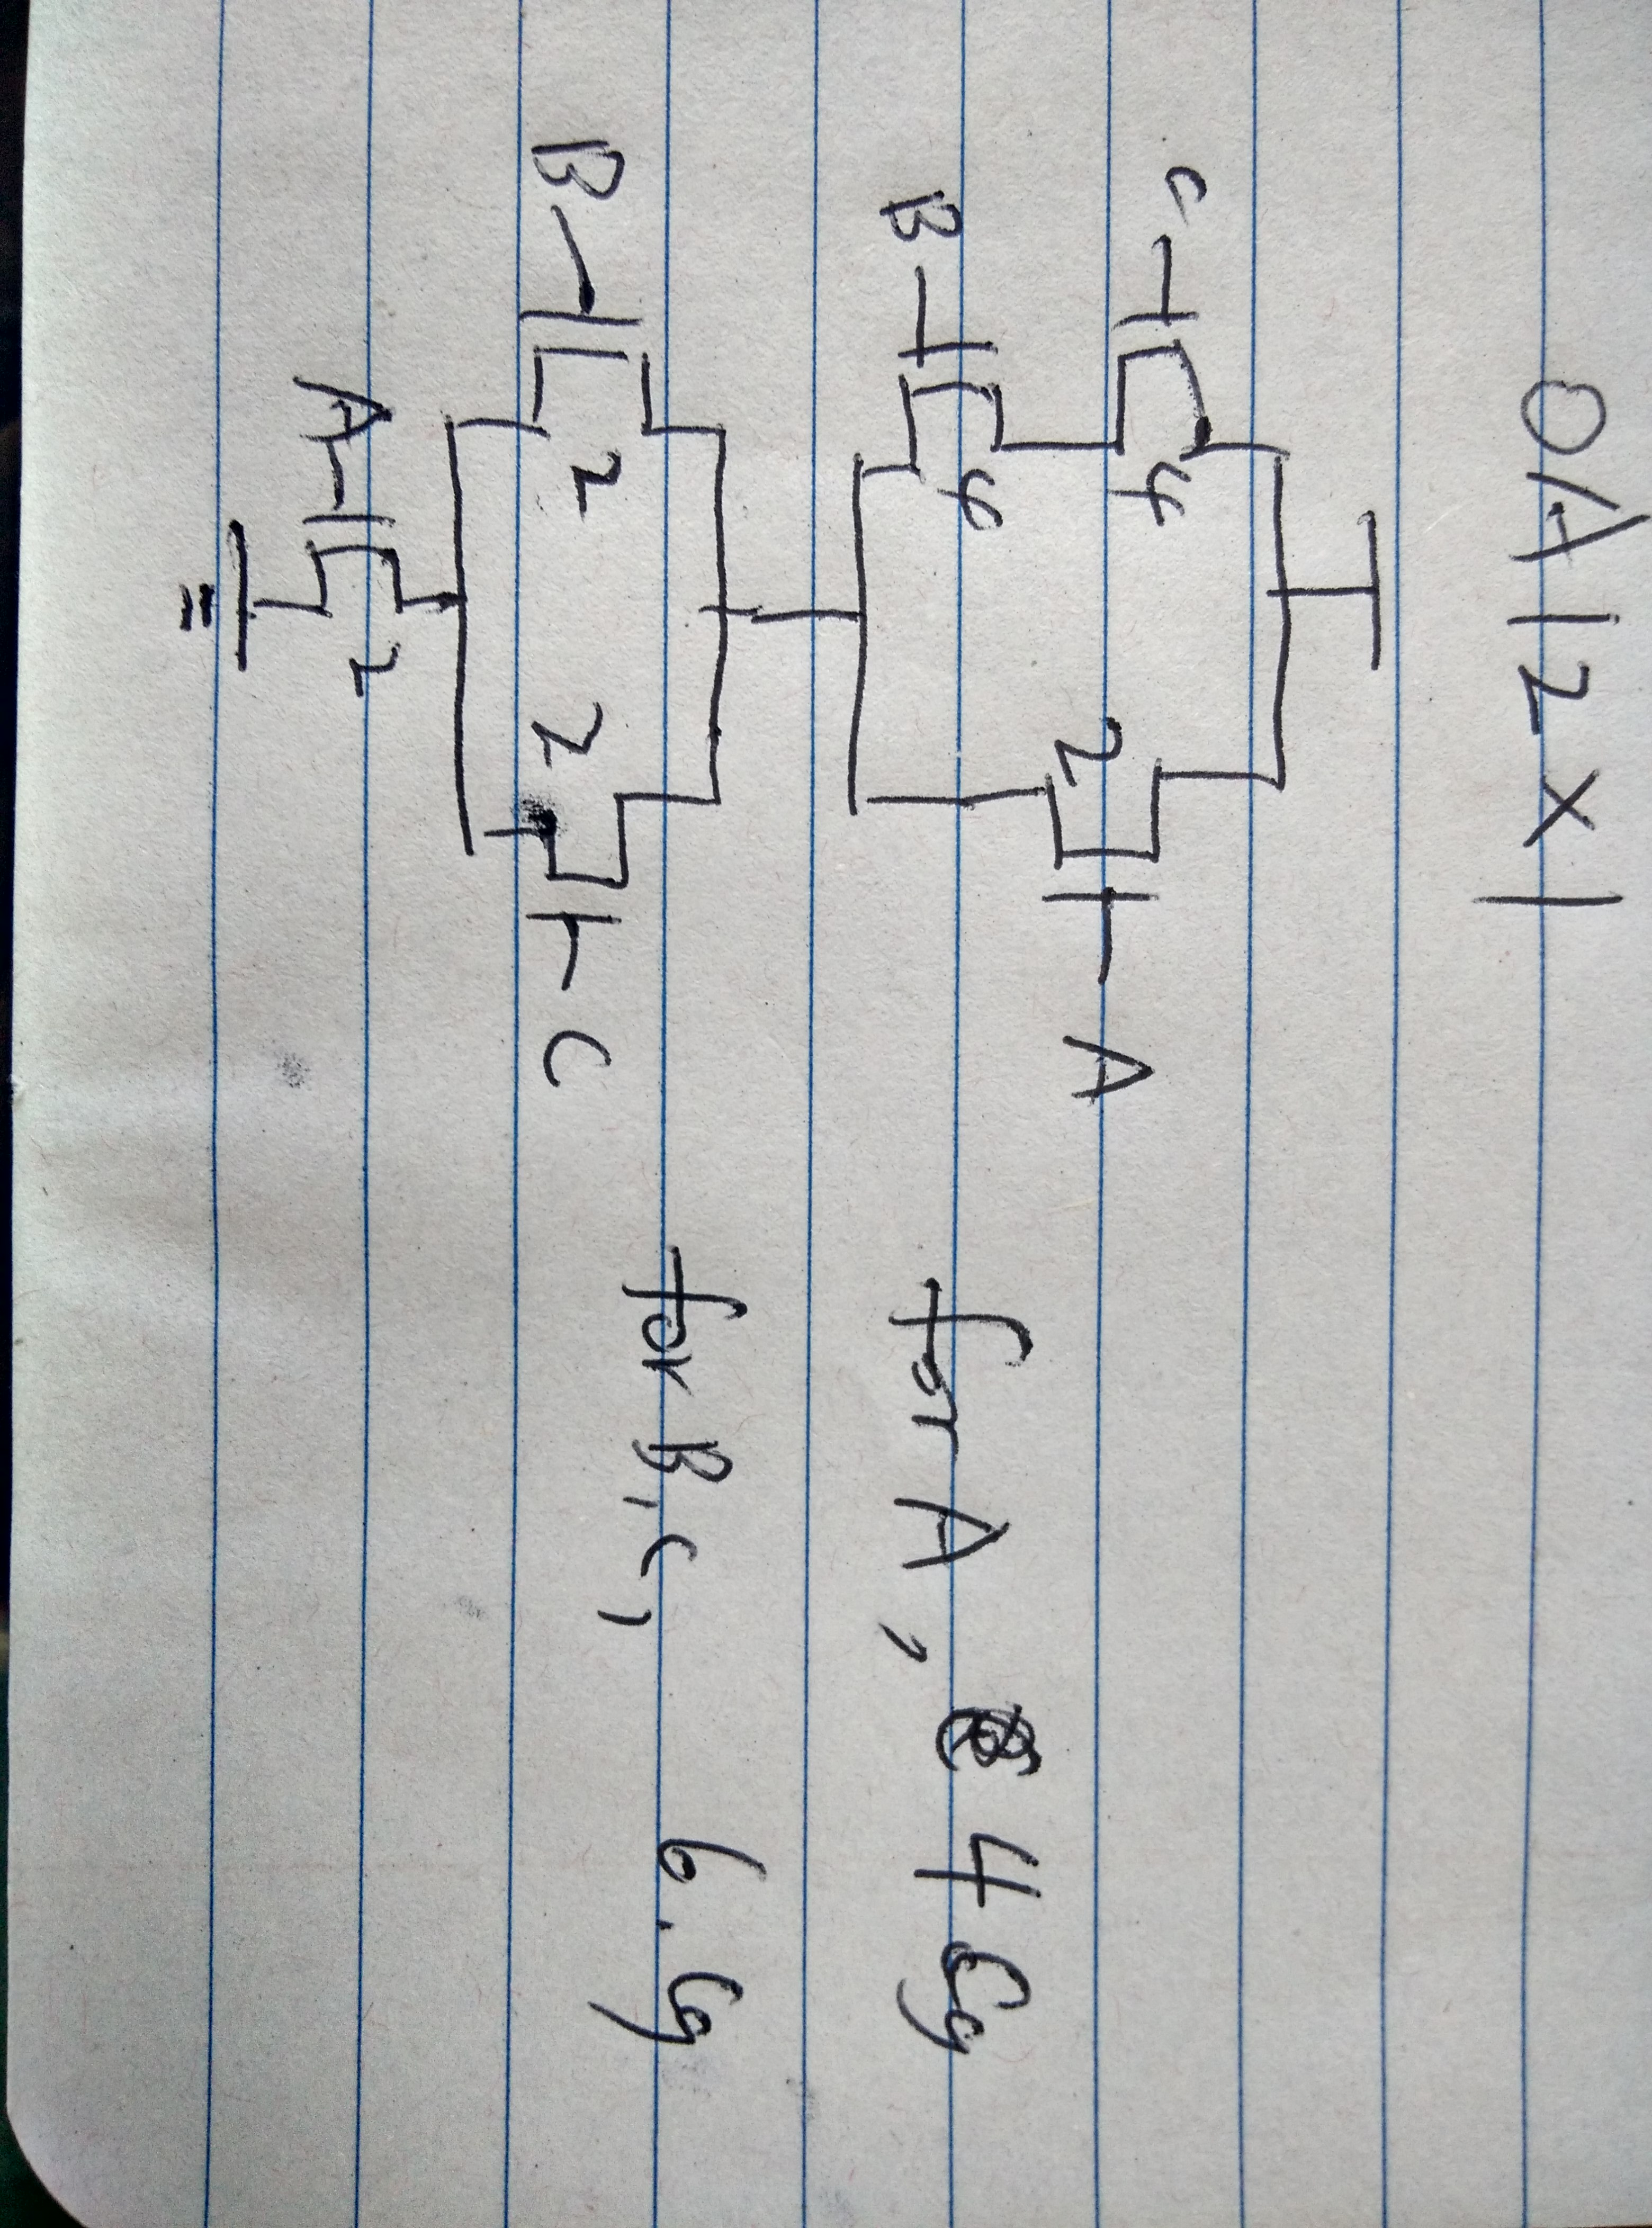 OAI2x1
C 4
2 A
B 4
B 2 2 C
A 2
for A, 4 Cg
for B, C, 6. Cg